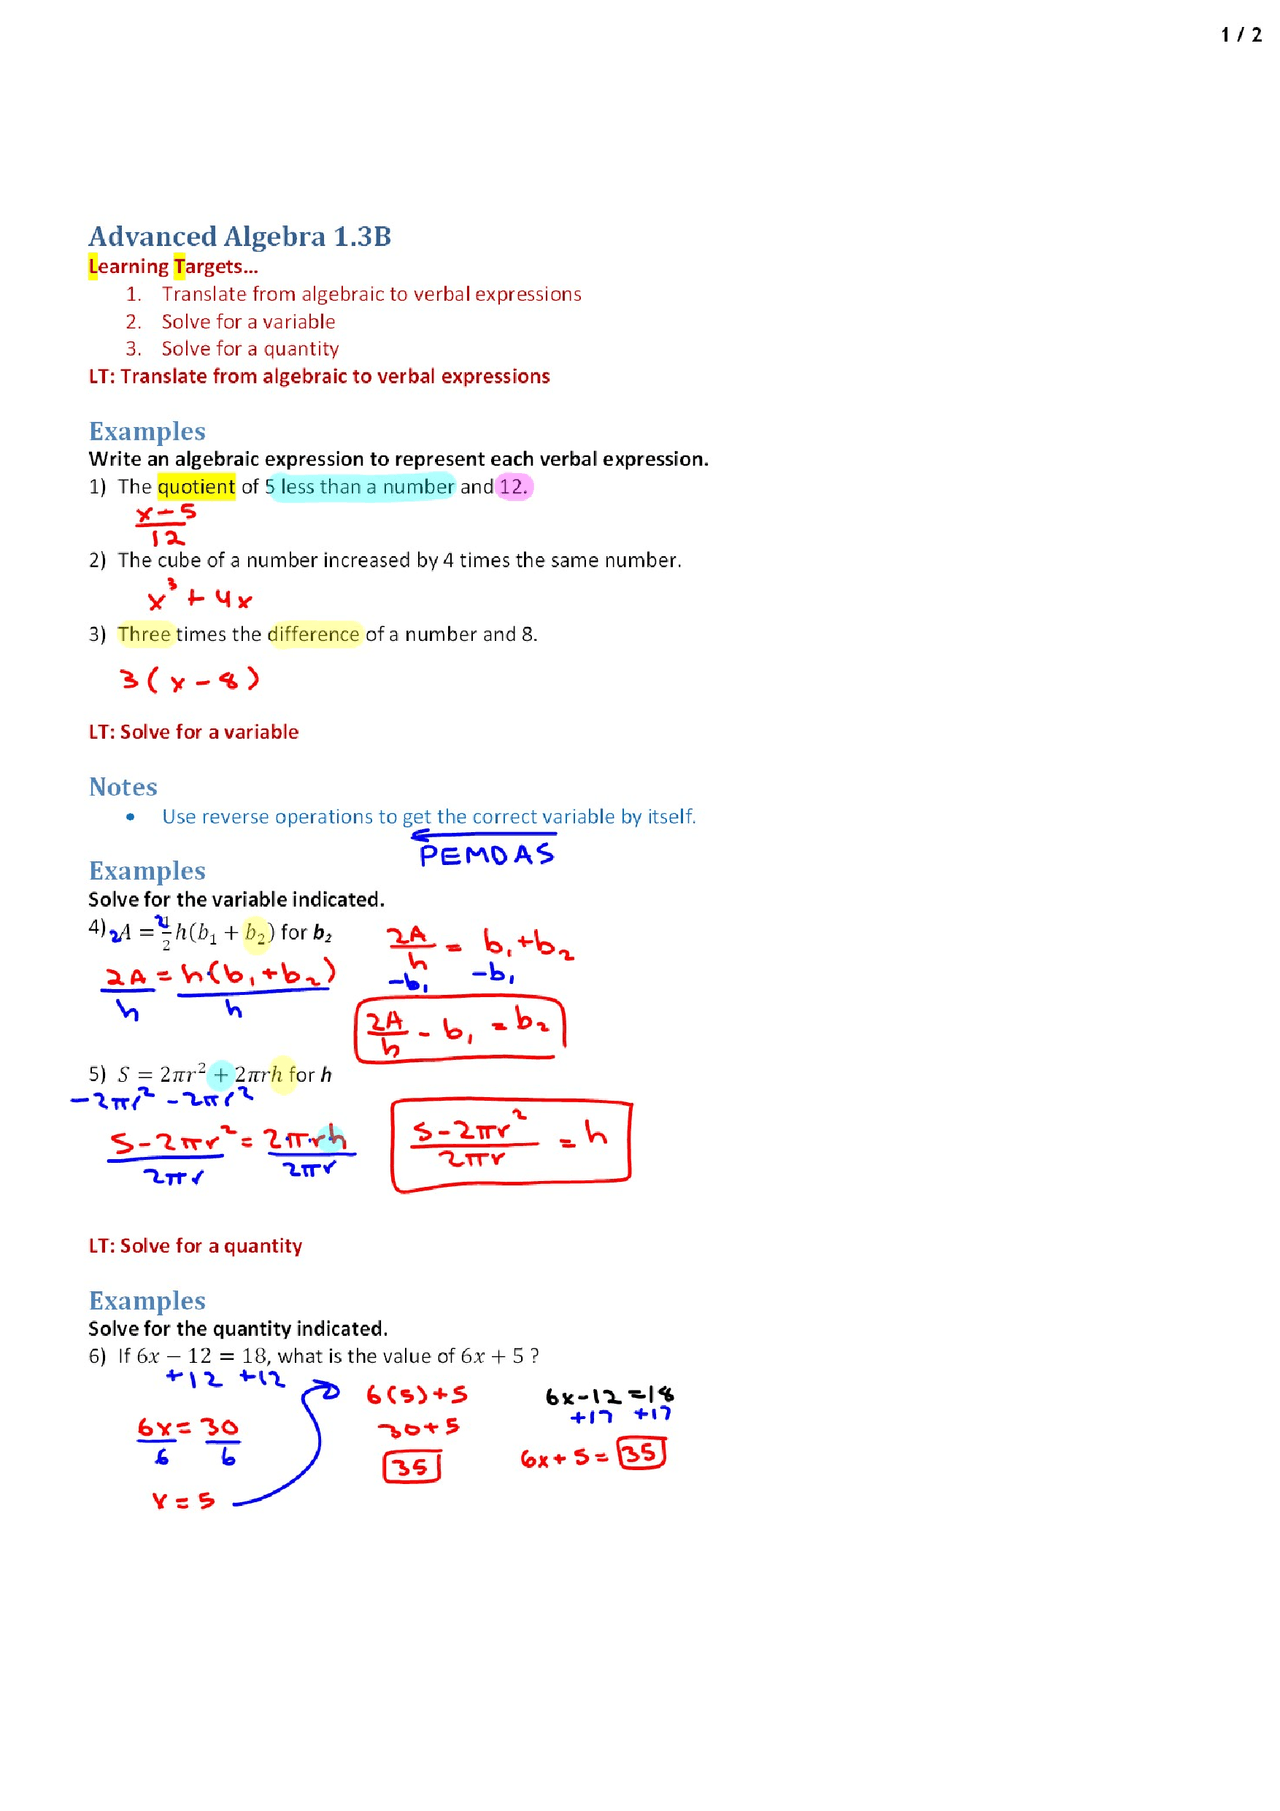 1 / 2
Advanced Algebra 1.3B
Learning Targets...
1. Translate from algebraic to verbal expressions
2. Solve for a variable
3. Solve for a quantity
LT: Translate from algebraic to verbal expressions
Examples
Write an algebraic expression to represent each verbal expression.
1) The quotient of 5 less than a number and 12.
x-5
12
2) The cube of a number increased by 4 times the same number.
x³ + 4x
3) Three times the difference of a number and 8.
3(x-8)
LT: Solve for a variable
Notes
• Use reverse operations to get the correct variable by itself.
PEMDAS
Examples
Solve for the variable indicated.
4) 2A = 2·1/2 h(b₁ + b₂) for b₂
2A = h(b₁+b₂)
h h
2A/h = b₁+b₂
-b₁ -b₁
2A/h - b₁ = b₂
5) S = 2πr² + 2πrh for h
-2πr² -2πr²
S-2πr² = 2π·rh
2πr 2πr
S-2πr²/2πr = h
LT: Solve for a quantity
Examples
Solve for the quantity indicated.
6) If 6x − 12 = 18, what is the value of 6x + 5 ?
+12 +12
6x = 30
6 6
x = 5
6(5)+5
30+5
35
6x-12=18
+17 +17
6x+5=35